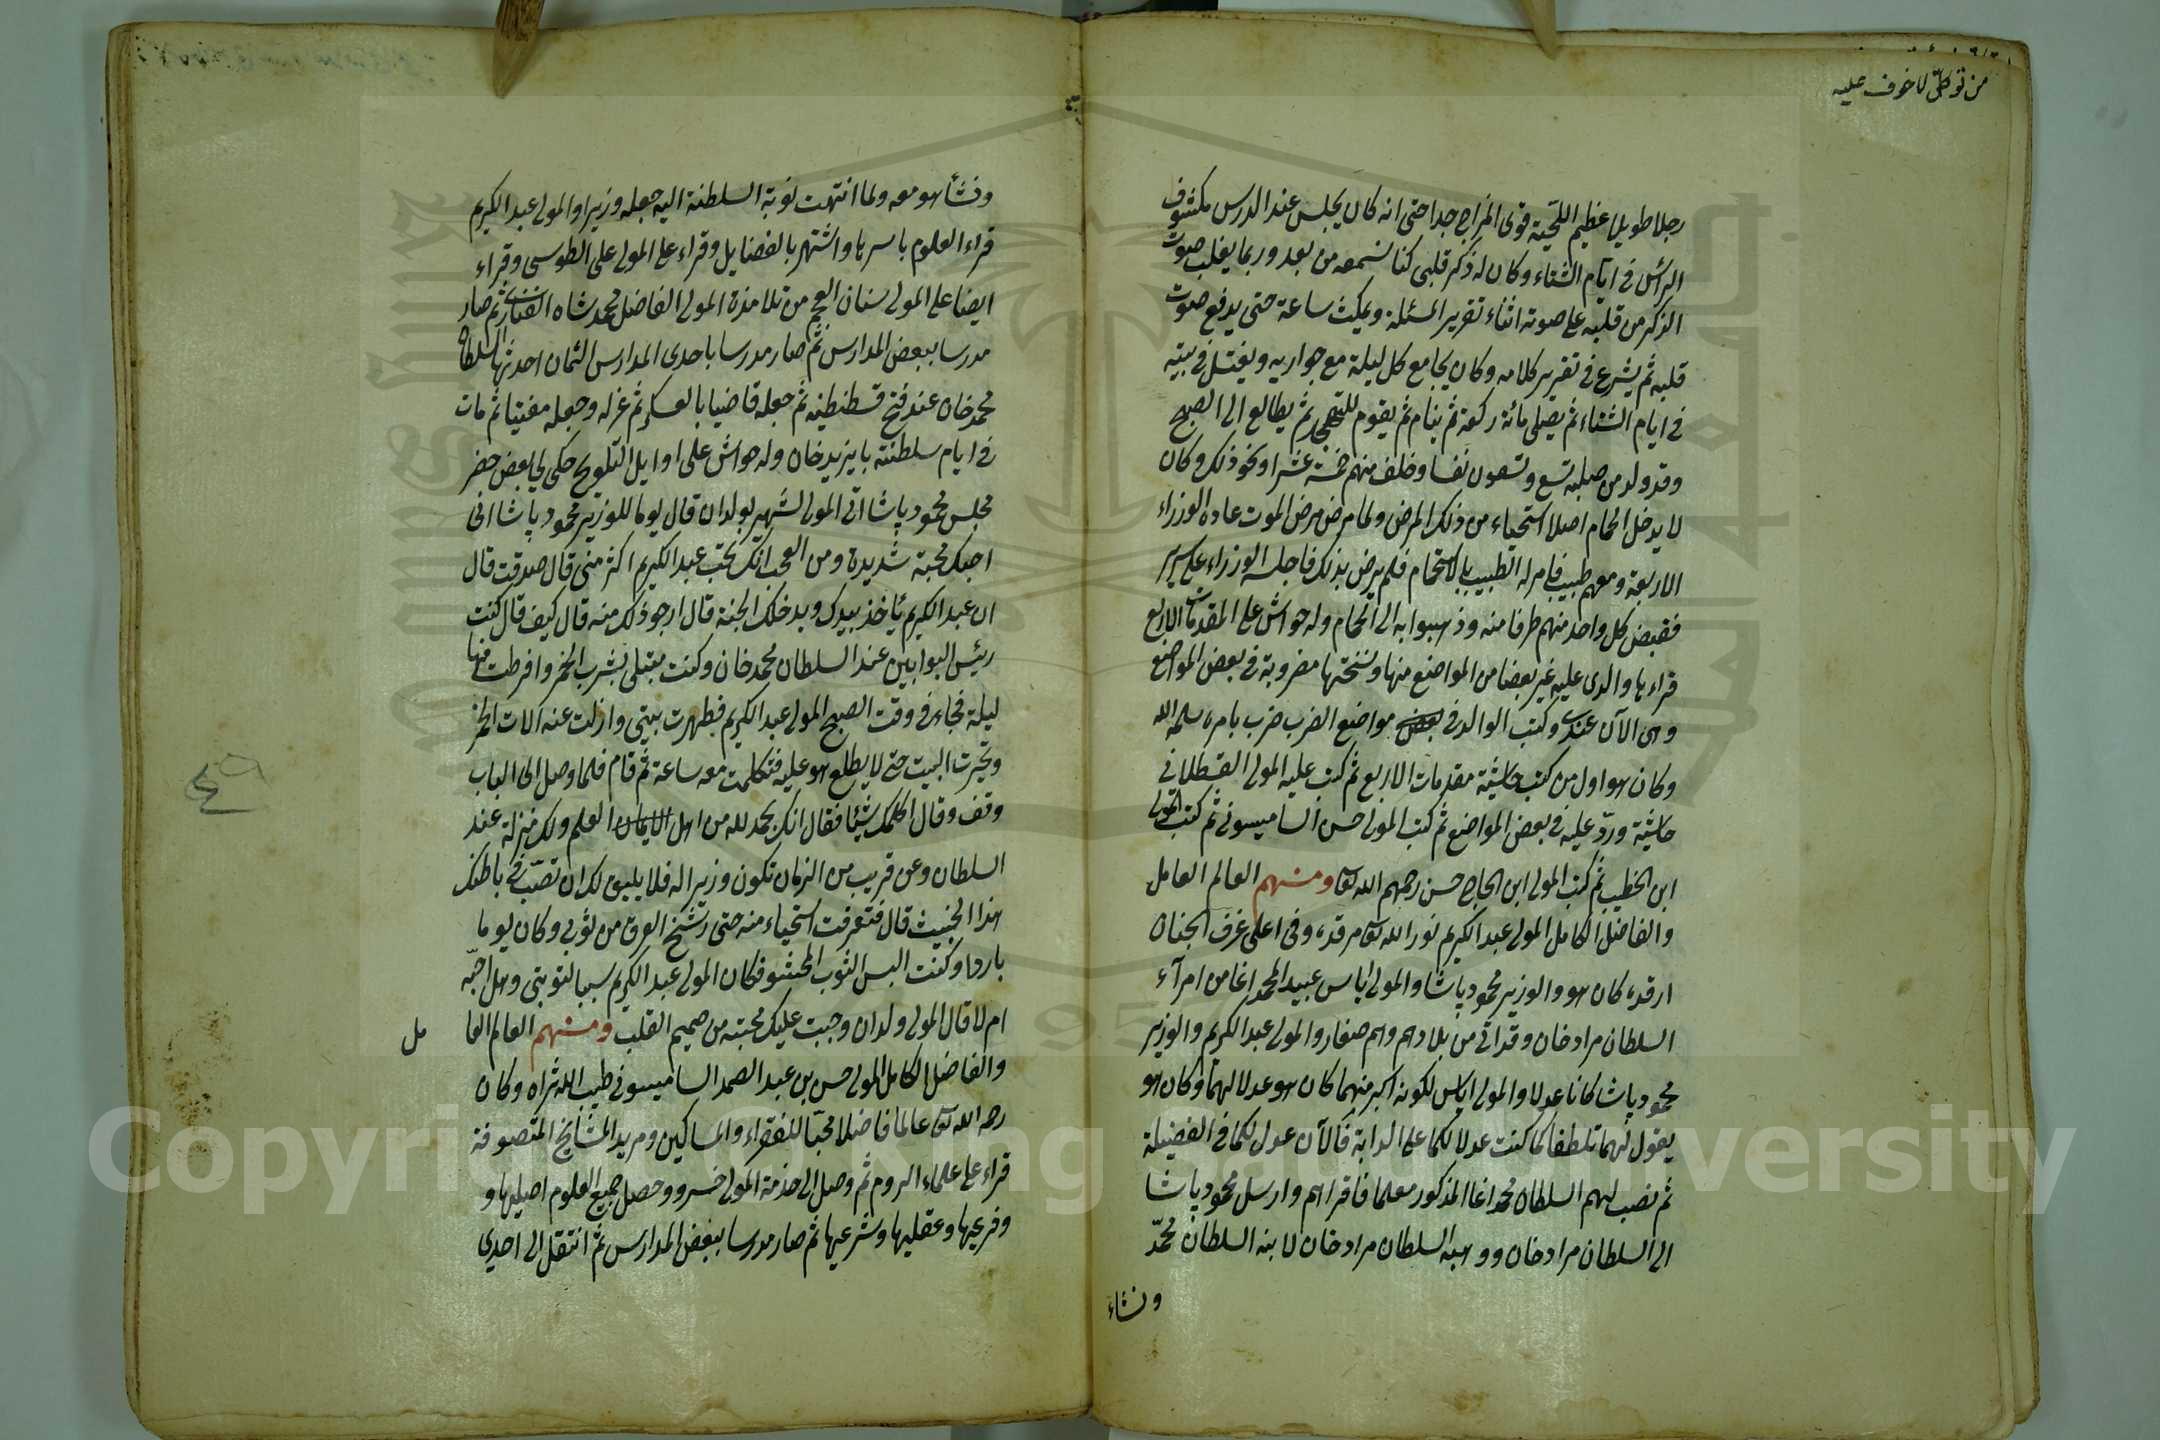 من توكل لا خوف عليه
رجلا طويلا عظيم اللحية قوى المزاج جدا حتى انه كان يجلس عند الدرس مكشوف
الرأس فى ايام الشتاء وكان له ذكر قلبى كنا نسمعه من بعد وربما يغلب صوت
الذكر من قلبه على صوته اثناء تقرير المسئلة ويمكث ساعة حتى يدفع صوت
قلبه ثم يشرع فى تقرير كلامه وكان يجامع كل ليلة مع جواريه ويغتسل فى بيته
فى ايام الشتاء ثم يصلى مائة ركعة ثم ينام ثم يقوم للتهجد ثم يطالع الى الصبح
وقد ولد من صلبه تسع وتسعون نفسا وخلف منهم خمسة عشر او نحو ذلك وكان
لا يدخل الحمام اصلا استحياء من ذلك المرض ولما مرض مرض الموت عاده الوزراء
الاربعة ومعهم طبيب فامر له الطبيب بالاستحمام فلم يرض بذلك فاجلسه الوزراء على سرير
فقبض كل واحد منهم طرفا منه وذهبوا به الى الحمام وله حواش على المقدمات الاربع
قراءها والدى عليه غير بعضا من المواضع منها ونسختها مضروبة فى بعض المواضع
وهى الآن عندى وكتب الوالد فى بعض مواضع الضرب ضرب بامره سلمه الله
وكان هو اول من كتب حاشية مقدمات الاربع ثم كتب عليه المولى القسطلانى
حاشية وردّ عليه فى بعض المواضع ثم كتب المولى حسن الساميسونى ثم كتب المولى
ابن الخطيب ثم كتب المولى ابن الحاج حسن رحمهم الله تعا ومنهم العالم العامل
والفاضل الكامل المولى عبد الكريم نور الله تع مرقده وفى اعلى غرف الجنان
ارقده كان هو والوزير محمود پاشا والمولى اياس عبيدا لمحمد اغا من امرآء
السلطان مراد خان وقد اتى من بلادهم وهم صغار والمولى عبد الكريم والوزير
محمود پاشا كانا عدلا والمولى اياس لكونه اكبر منهما كان هو عدلا لهما وكان هو
يقول لهما تلطفا كما كنت عدلا لكما على الدابة فالآن عدل لكما فى الفضيلة
ثم نصب لهم السلطان محمد اغا المذكور معلما فاقراهم وارسل محمود پاشا
الى السلطان مراد خان ووهبه السلطان مراد خان لابنه السلطان محمّد
ونشاء
ونشأ هو معه ولما انتهت نوبة السلطنة اليه جعله وزيرا والمولى عبد الكريم
قراء العلوم باسرها واشتهر بالفضايل وقراء على المولى على الطوسى وقراء
ايضا على المولى سنان العجم من تلامذة المولى الفاضل محمد شاه الفنارى ثم صار
مدرسا ببعض المدارس ثم صار مدرسا باحدى المدارس الثمان احدثها السلطان
محمد خان عند فتح قسطنطينه ثم جعله قاضيا بالعسكر ثم عزله وجعله مفتيا ثم مات
فى ايام سلطنته بايزيد خان وله حواش على اوايل التلويح حكى لى بعض حضر
مجلس محمود پاشا اتى المولى الشهير بولدان قال يوما للوزير محمود پاشا انى
احبك محبة شديدة ومن العجب انك تحب عبد الكريم اكثر منى قال صدقت قال
ان عبد الكريم يأخذ بيدك ويدخلك الجنة قال ارجو ذلك منه قال كيف قال كنت
رئيس البوابين عند السلطان محمد خان وكنت مبتلى بشرب الخمر وافرطت فيها
ليلة فجاء فى وقت الصبح المولى عبد الكريم فطهرت بيتى وازلت عنه آلات الخمر
وبخرت البيت حتى لا يطلع هو عليه فتكلمت معه ساعة ثم قام فلما وصل الى الباب
وقف وقال اكلمك شيئا فقال انك بحمد لله من اهل الايمان العلم ولك منزلة عند
السلطان وعن قريب من الزمان تكون وزيرا له فلا يليق لك ان تصبّ فى باطنك
هذا الخبيث قال فتعرقت استحياء منه حتى رشح العرق من ثوبى وكان يوما
باردا وكنت البس الثوب المحشو فكان المولى عبد الكريم سببا لتوبتى وهل احبّه
ام لا قال المولى ولدان وجبت عليك محبته من صميم القلب ومنهم العالم العا مل
والفاضل الكامل المولى حسن بن عبد الصمد الساميسونى طيب الله ثراه وكان
رحمه الله تع عالما فاضلا محبّا للفقراء والمساكين ومريد المشايخ المتصوفة
قراء على علماء الروم ثم وصل الى خدمة المولى خسرو وحصل جميع العلوم اصيلها و
وفرعيها وعقليها وشرعيها ثم صار مدرسا ببعض المدارس ثم انتقل الى احدى
٤٩
Copyright © King Saud University
جامعة الملك سعود
1957